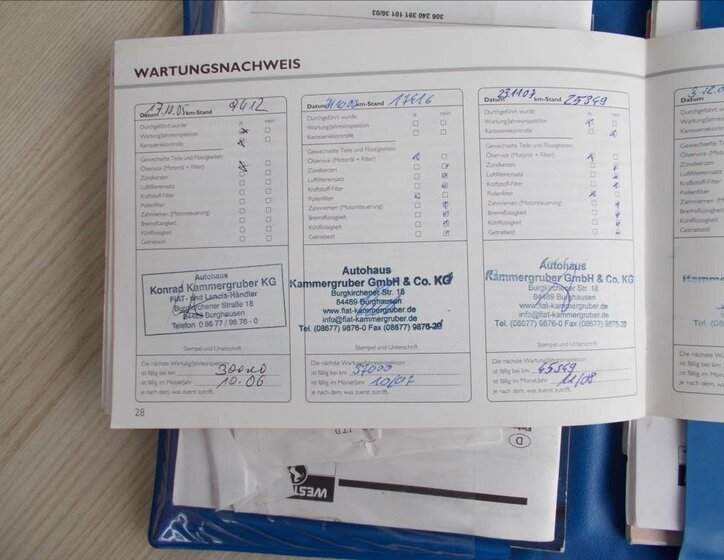 306 240 391 101 36/03
WARTUNGSNACHWEIS
Datum 17.11.05 km-Stand 9412
Durchgeführt wurde: ja nein
Wartung/Jahresinspektion
Karosseriekontrolle
Gewechselte Teile und Flüssigkeiten:
Ölservice (Motoröl + Filter)
Zündkerzen
Luftfiltereinsatz
Kraftstoff-Filter
Pollenfilter
Zahnriemen (Motorsteuerung)
Bremsflüssigkeit
Kühlflüssigkeit
Getriebeöl
Autohaus
Konrad Kammergruber KG
FIAT- und Lancia-Händler
Burgkirchener Straße 18
Burghausen
Telefon 0 86 77 / 98 76 - 0
Stempel und Unterschrift
Die nächste Wartung/Jahresinspektion
ist fällig bei km 30000
ist fällig im Monat/Jahr 10.06
je nach dem, was zuerst zutrifft.
28
Datum km-Stand 17416
Durchgeführt wurde: ja nein
Wartung/Jahresinspektion
Karosseriekontrolle
Gewechselte Teile und Flüssigkeiten:
Ölservice (Motoröl + Filter)
Zündkerzen
Luftfiltereinsatz
Kraftstoff-Filter
Pollenfilter
Zahnriemen (Motorsteuerung)
Bremsflüssigkeit
Kühlflüssigkeit
Getriebeöl
Autohaus
Kammergruber GmbH & Co. KG
Burgkirchener Str. 18
84489 Burghausen
www.fiat-kammergruber.de
info@fiat-kammergruber.de
Tel. (08677) 9876-0 Fax (08677) 9876-20
Stempel und Unterschrift
Die nächste Wartung/Jahresinspektion
ist fällig bei km
ist fällig im Monat/Jahr 10/07
je nach dem, was zuerst zutrifft.
Datum 23.11.07 km-Stand 25349
Durchgeführt wurde: ja nein
Wartung/Jahresinspektion
Karosseriekontrolle
Gewechselte Teile und Flüssigkeiten:
Ölservice (Motoröl + Filter)
Zündkerzen
Luftfiltereinsatz
Kraftstoff-Filter
Pollenfilter
Zahnriemen (Motorsteuerung)
Bremsflüssigkeit
Kühlflüssigkeit
Getriebeöl
Autohaus
Kammergruber GmbH & Co. KG
Burgkirchener Str. 18
84489 Burghausen
www.fiat-kammergruber.de
info@fiat-kammergruber.de
Tel. (08677) 9876-0 Fax (08677) 9876-20
Stempel und Unterschrift
Die nächste Wartung/Jahresinspektion
ist fällig bei km 45349
ist fällig im Monat/Jahr 11/08
je nach dem, was zuerst zutrifft.
Datum
Durchgeführt
Wartung/Jahres
Karosseriekont
Gewechselte
Ölservice (Mo
Zündkerzen
Luftfiltereinsatz
Kraftstoff-Filter
Pollenfilter
Zahnriemen
Bremsflüssigkeit
Kühlflüssigkeit
Getriebeöl
Die nächste
ist fällig bei km
ist fällig im M
je nach dem
D
WEST